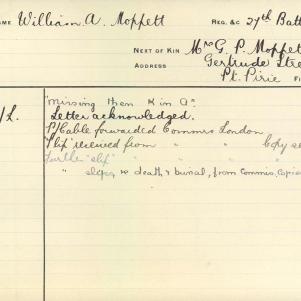 AME William A. Moppett REG. &c 27th Batt
NEXT OF KIN Mrs G. P. Moppet
ADDRESS Gertrude Stree
Pt. Pirie FI
/L. "Missing then K in A"
Letter acknowledged.
P/Cable forwarded Commrs London
"Slip" received from " " Copy se
Further "slip" " "
" slips re death & burial, from Commrs. Copies